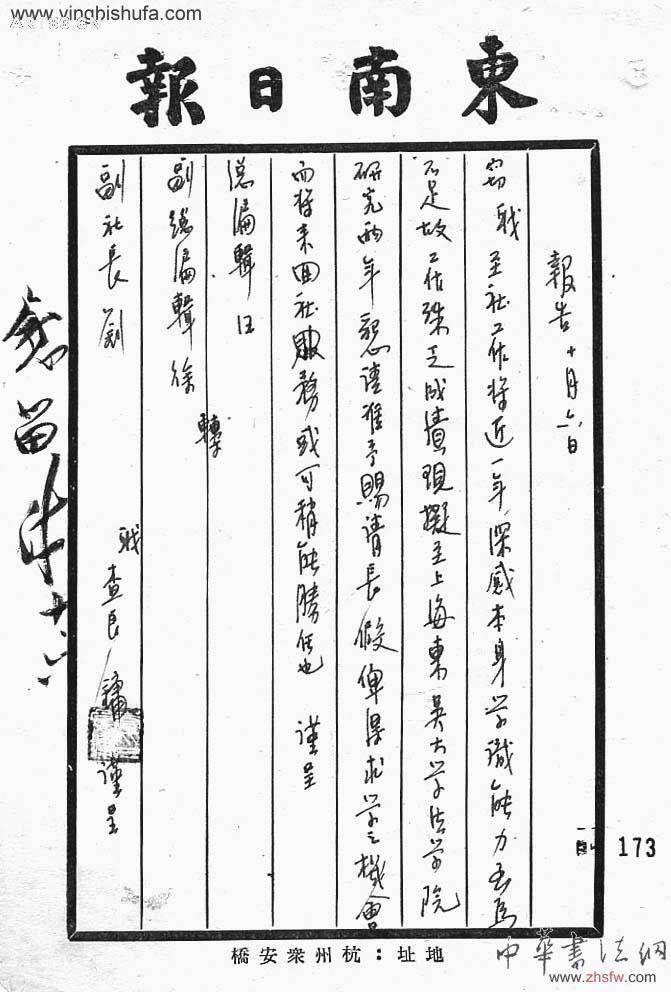 www.yingbishufa.com
東南日報
報告 十月六日
窃職至社工作将近一年深感本身学識能力至為
不足故工作殊乏成績現擬至上海東吳大学法学院
研究两年懇請准予賜請長假俾得求学之機會
而将来回社服務或可稍能勝任也 謹呈
總編輯汪
副總編輯徐 轉
副社長劉
職查良鏞謹呈
173
地址：杭州衆安橋
中華書法網
www.zhsfw.com